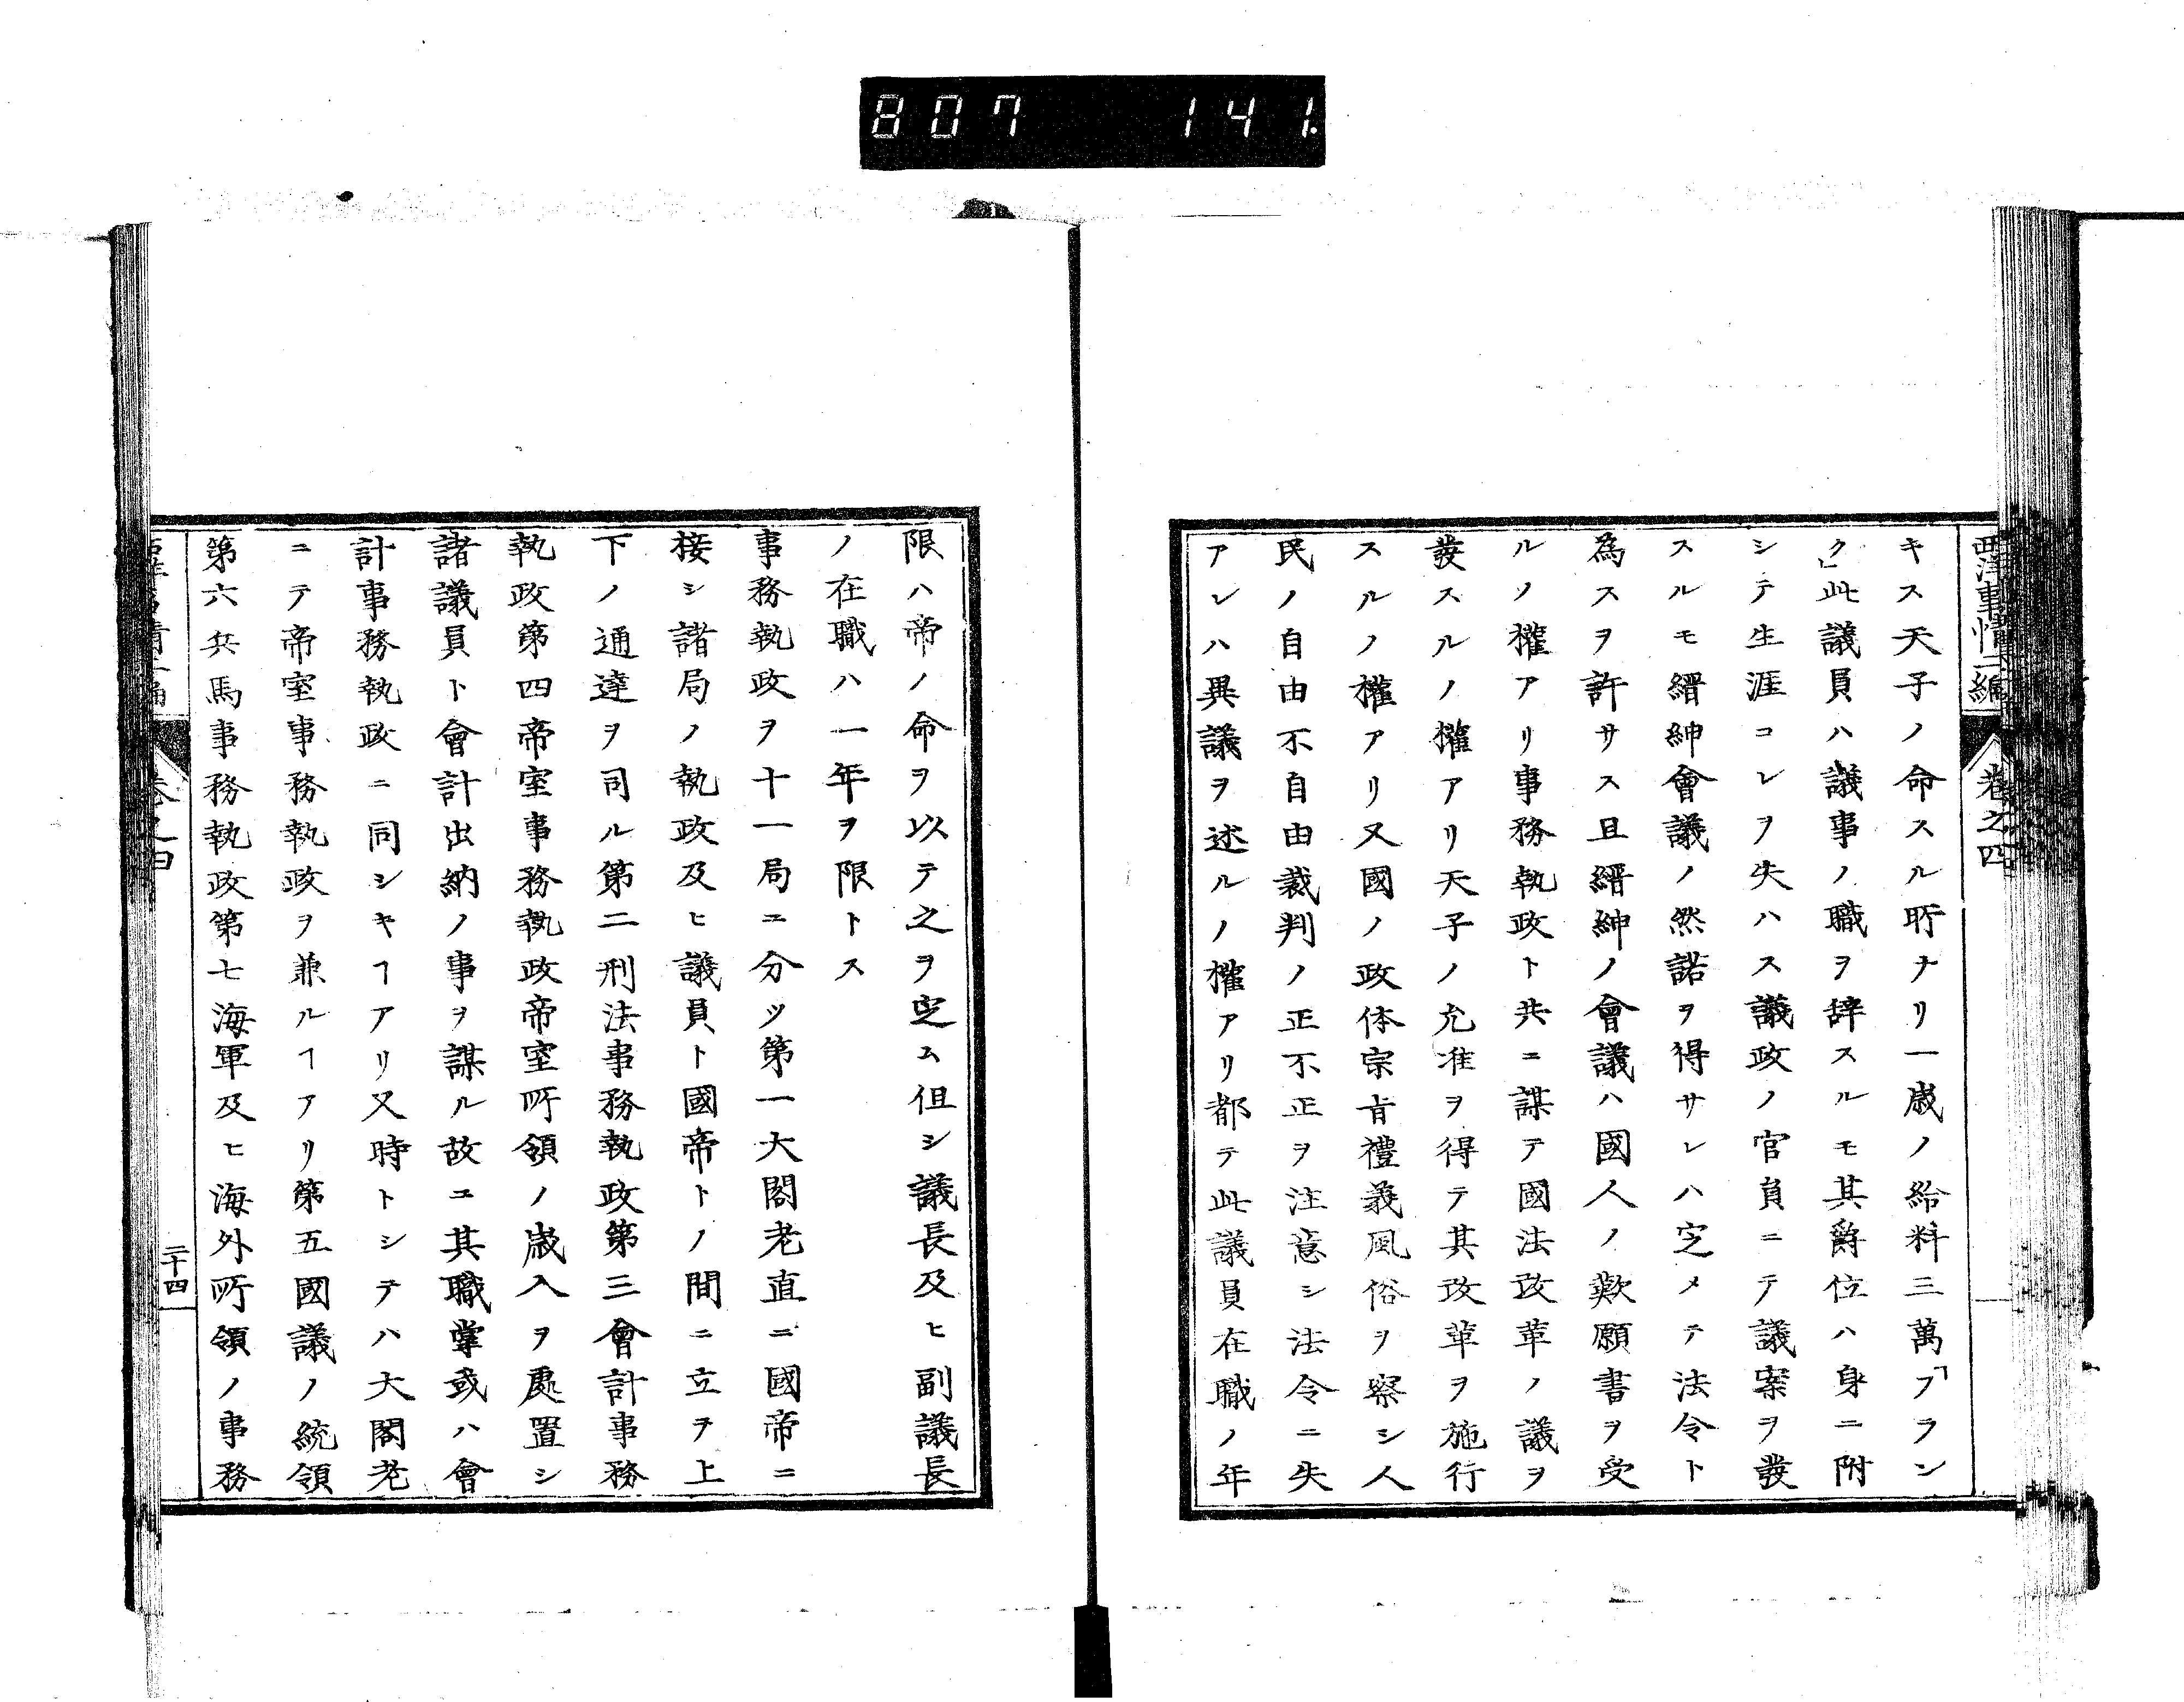 807 141.
西洋事情二編 卷之四
キス天子ノ命スル所ナリ一歳ノ給料三萬「フラン
ク」此議員ハ議事ノ職ヲ辞スルモ其爵位ハ身ニ附
シテ生涯コレヲ失ハス議政ノ官員ニテ議案ヲ發
スルモ縉紳會議ノ然諾ヲ得サレハ定メテ法令ト
為スヲ許サス且縉紳ノ會議ハ國人ノ歎願書ヲ受
ルノ權アリ事務執政ト共ニ謀テ國法改革ノ議ヲ
發スルノ權アリ天子ノ允准ヲ得テ其改革ヲ施行
スルノ權アリ又國ノ政体宗旨禮義風俗ヲ察シ人
民ノ自由不自由裁判ノ正不正ヲ注意シ法令ニ失
アレハ異議ヲ述ルノ權アリ都テ此議員在職ノ年
限ハ帝ノ命ヲ以テ之ヲ定ム但シ議長及ヒ副議長
ノ在職ハ一年ヲ限トス
事務執政ヲ十一局ニ分ツ第一大閣老直ニ國帝ニ
接シ諸局ノ執政及ヒ議員ト國帝トノ間ニ立ヲ上
下ノ通達ヲ司ル第二刑法事務執政第三會計事務
執政第四帝室事務執政帝室所領ノ歳入ヲ處置シ
諸議員ト會計出納ノ事ヲ謀ル故ニ其職掌或ハ會
計事務執政ニ同シキヿアリ又時トシテハ大閣老
ニテ帝室事務執政ヲ兼ルヿアリ第五國議ノ統領
第六兵馬事務執政第七海軍及ヒ海外所領ノ事務
卷之四 二十四